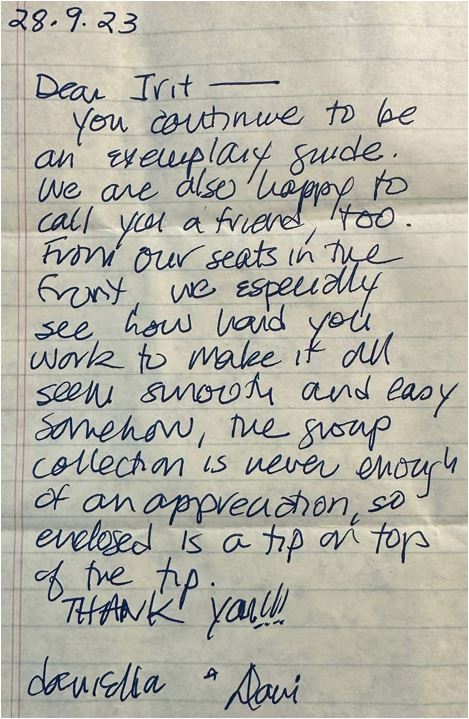 28.9.23
Dear Irit —
You continue to be
an exemplary guide.
We are also happy to
call you a friend, too.
From our seats in the
front, we especially
see how hard you
work to make it all
seem smooth and easy
Somehow, the group
collection is never enough
of an appreciation, so
enclosed is a tip on top
of the tip.
THANK you!!!!
daniella & Davi